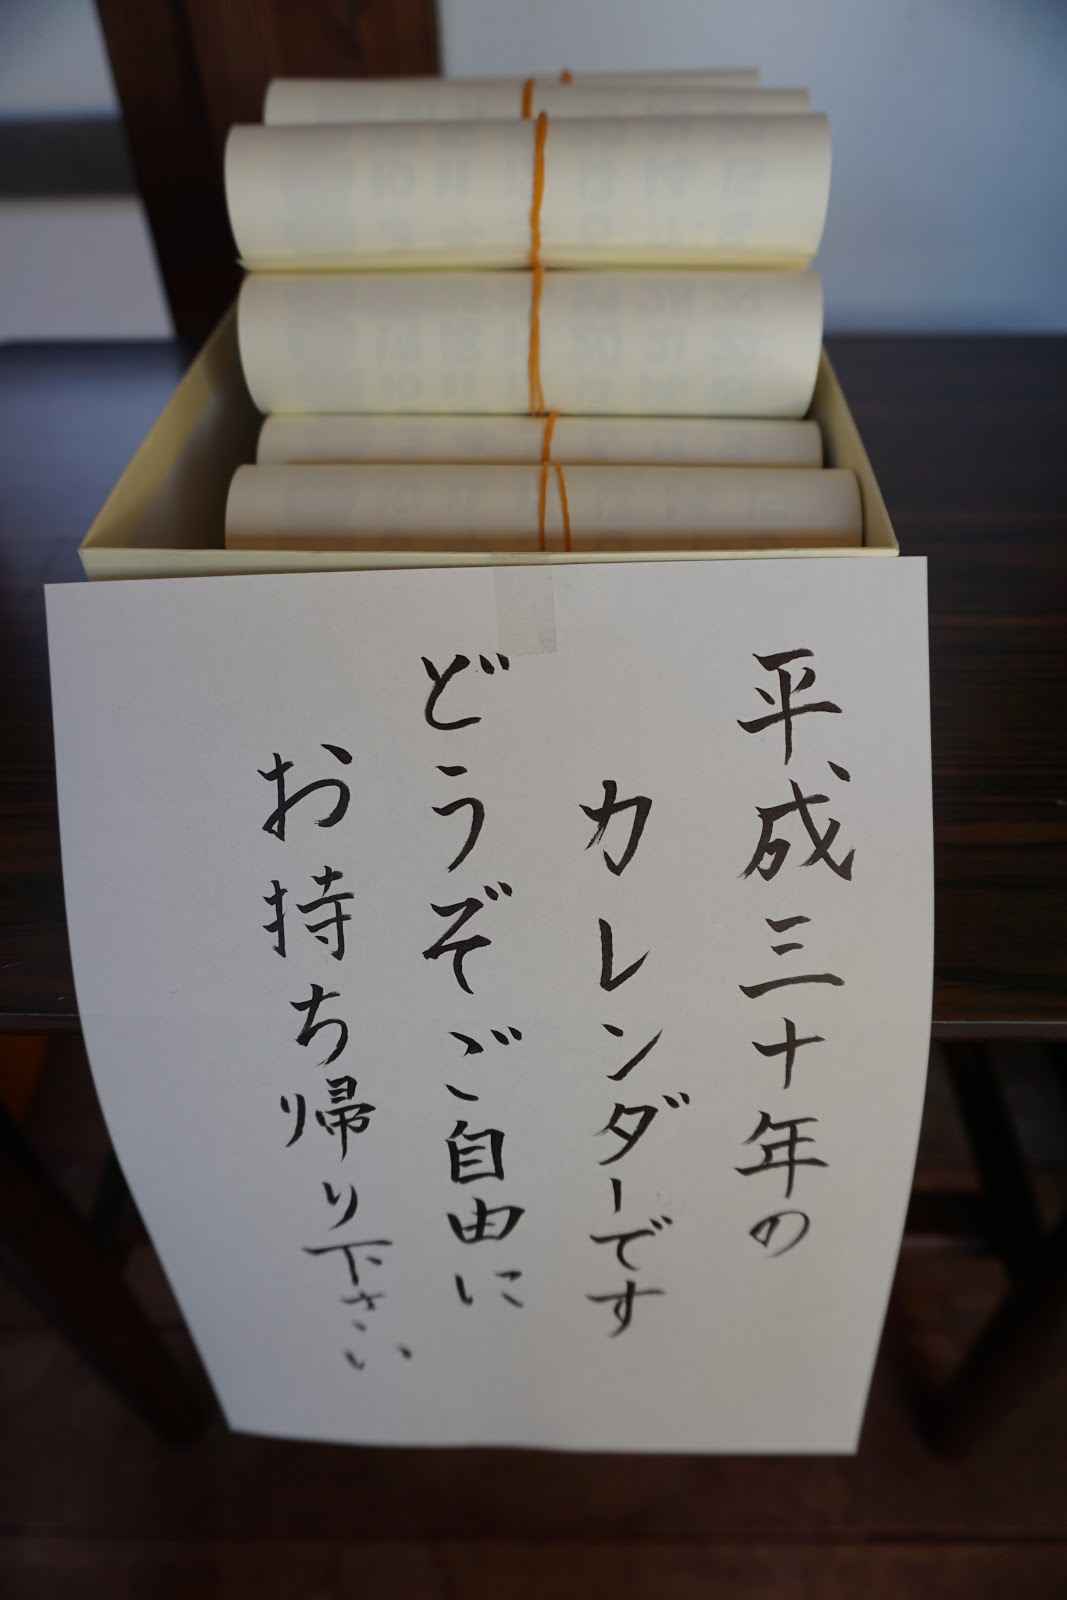 平成三十年の
カレンダーです
どうぞご自由に
お持ち帰り下さい